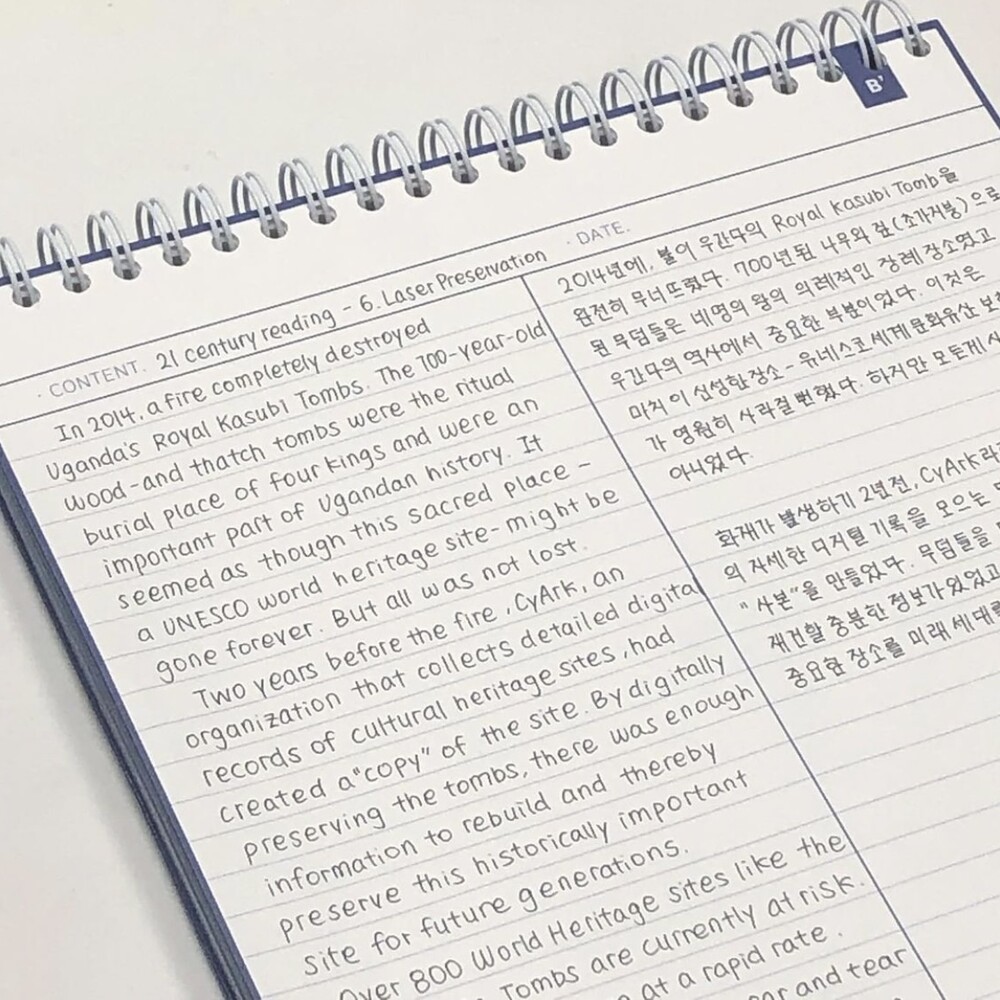 B'
CONTENT. 21 century reading - 6. Laser Preservation
DATE.
In 2014, a fire completely destroyed
Uganda's Royal Kasubi Tombs. The 700-year-old
wood-and thatch tombs were the ritual
burial place of four kings and were an
important part of Ugandan history. It
seemed as though this sacred place -
a UNESCO world heritage site- might be
gone forever. But all was not lost.
Two years before the fire, CyArk, an
organization that collects detailed digital
records of cultural heritage sites, had
created a "copy" of the site. By digitally
preserving the tombs, there was enough
information to rebuild and thereby
preserve this historically important
site for future generations.
Over 800 World Heritage sites like the
Tombs are currently at risk.
at a rapid rate.
and tear
2014년에, 불이 우간다의 Royal Kasubi Tomb을
완전히 무너뜨렸다. 700년된 나무와 짚(초가지붕)으로
된 무덤들은 네명의 왕의 의례적인 장례 장소였고
우간다의 역사에서 중요한 부분이었다. 이것은
마치 이 신성한 장소 - 유네스코 세계 문화유산 보
가 영원히 사라질 뻔했다. 하지만 모든게 사
아니었다.
화재가 발생하기 2년전, CyArk라
의 자세한 디지털 기록을 모으는
"사본"을 만들었다. 무덤들을
재건할 충분한 정보가 있었고
중요한 장소를 미래 세대를